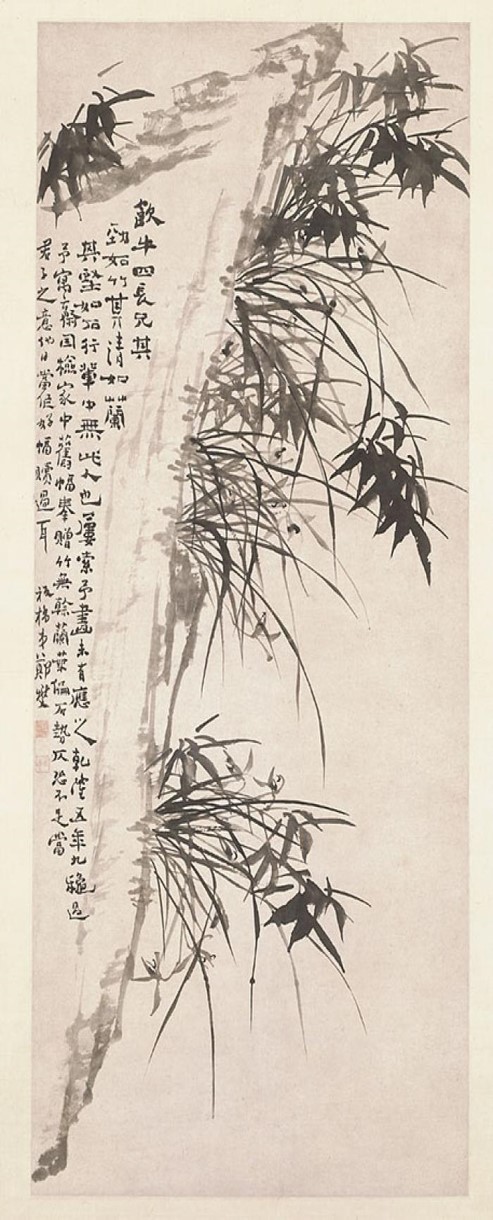 飲牛四長兄其
勁如竹其清如蘭
其堅如石行輩中無此人也屢索予畫未有應之乾隆五年九龝過
予寓齋因撿家中舊幅奉贈竹無餘蘭葉偏石勢仄恐不足當
君子之意他日當作好幅贖過耳 板橋弟鄭燮